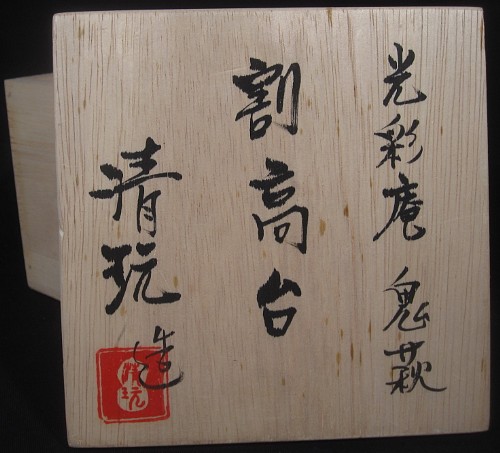 光彩庵 鬼萩
割高台
清玩造
清玩